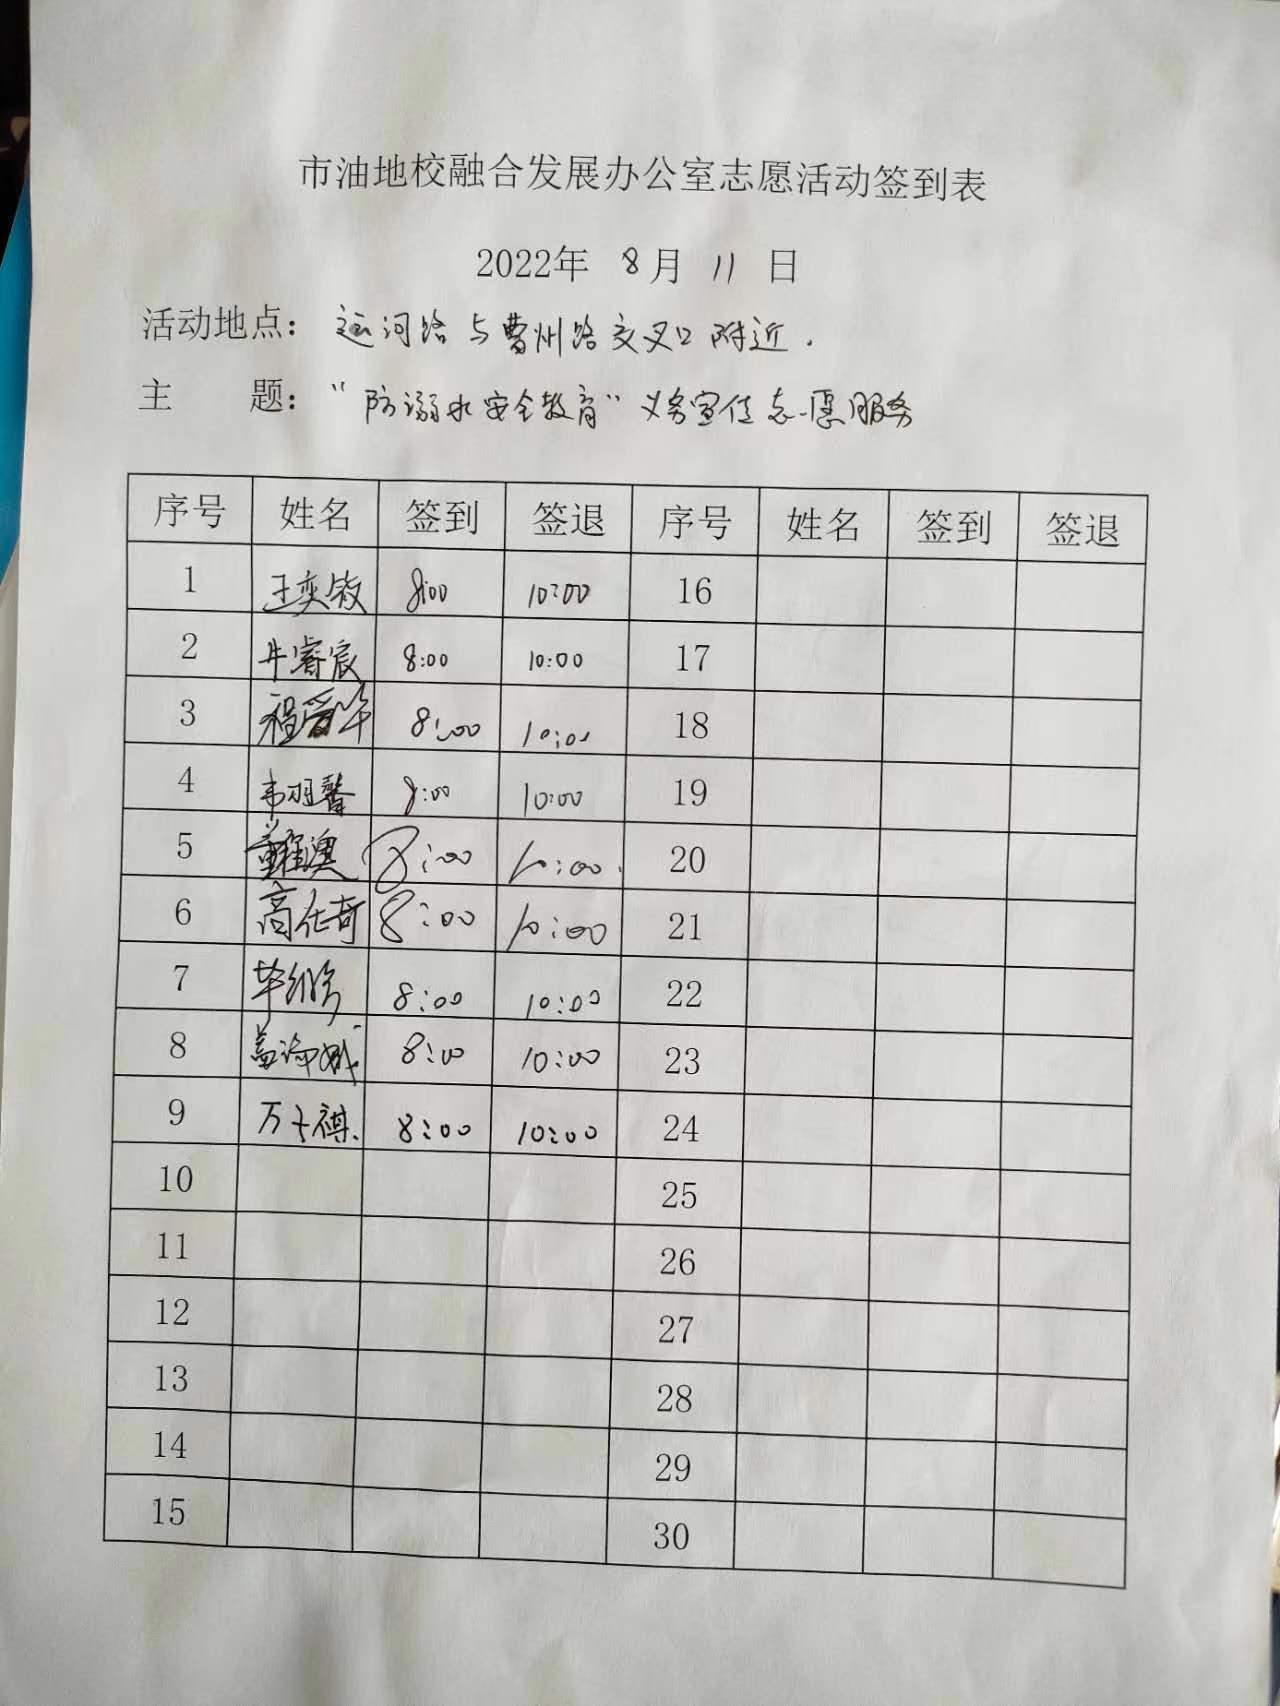 市油地校融合发展办公室志愿活动签到表
2022年 8月 11 日
活动地点：运河路与曹州路交叉口附近.
主 题：“防溺水安全教育”义务宣传志愿服务
序号 姓名 签到 签退 序号 姓名 签到 签退
1 王奕 8:00 10:00 16
2 牛睿宸 8:00 10:00 17
3 程爱华 8:00 10:00 18
4 韦羽馨 8:00 10:00 19
5 董耀澳 8:00 10:00 20
6 高仕奇 8:00 10:00 21
7 8:00 10:00 22
8 8:00 10:00 23
9 万子祺. 8:00 10:00 24
10 25
11 26
12 27
13 28
14 29
15 30